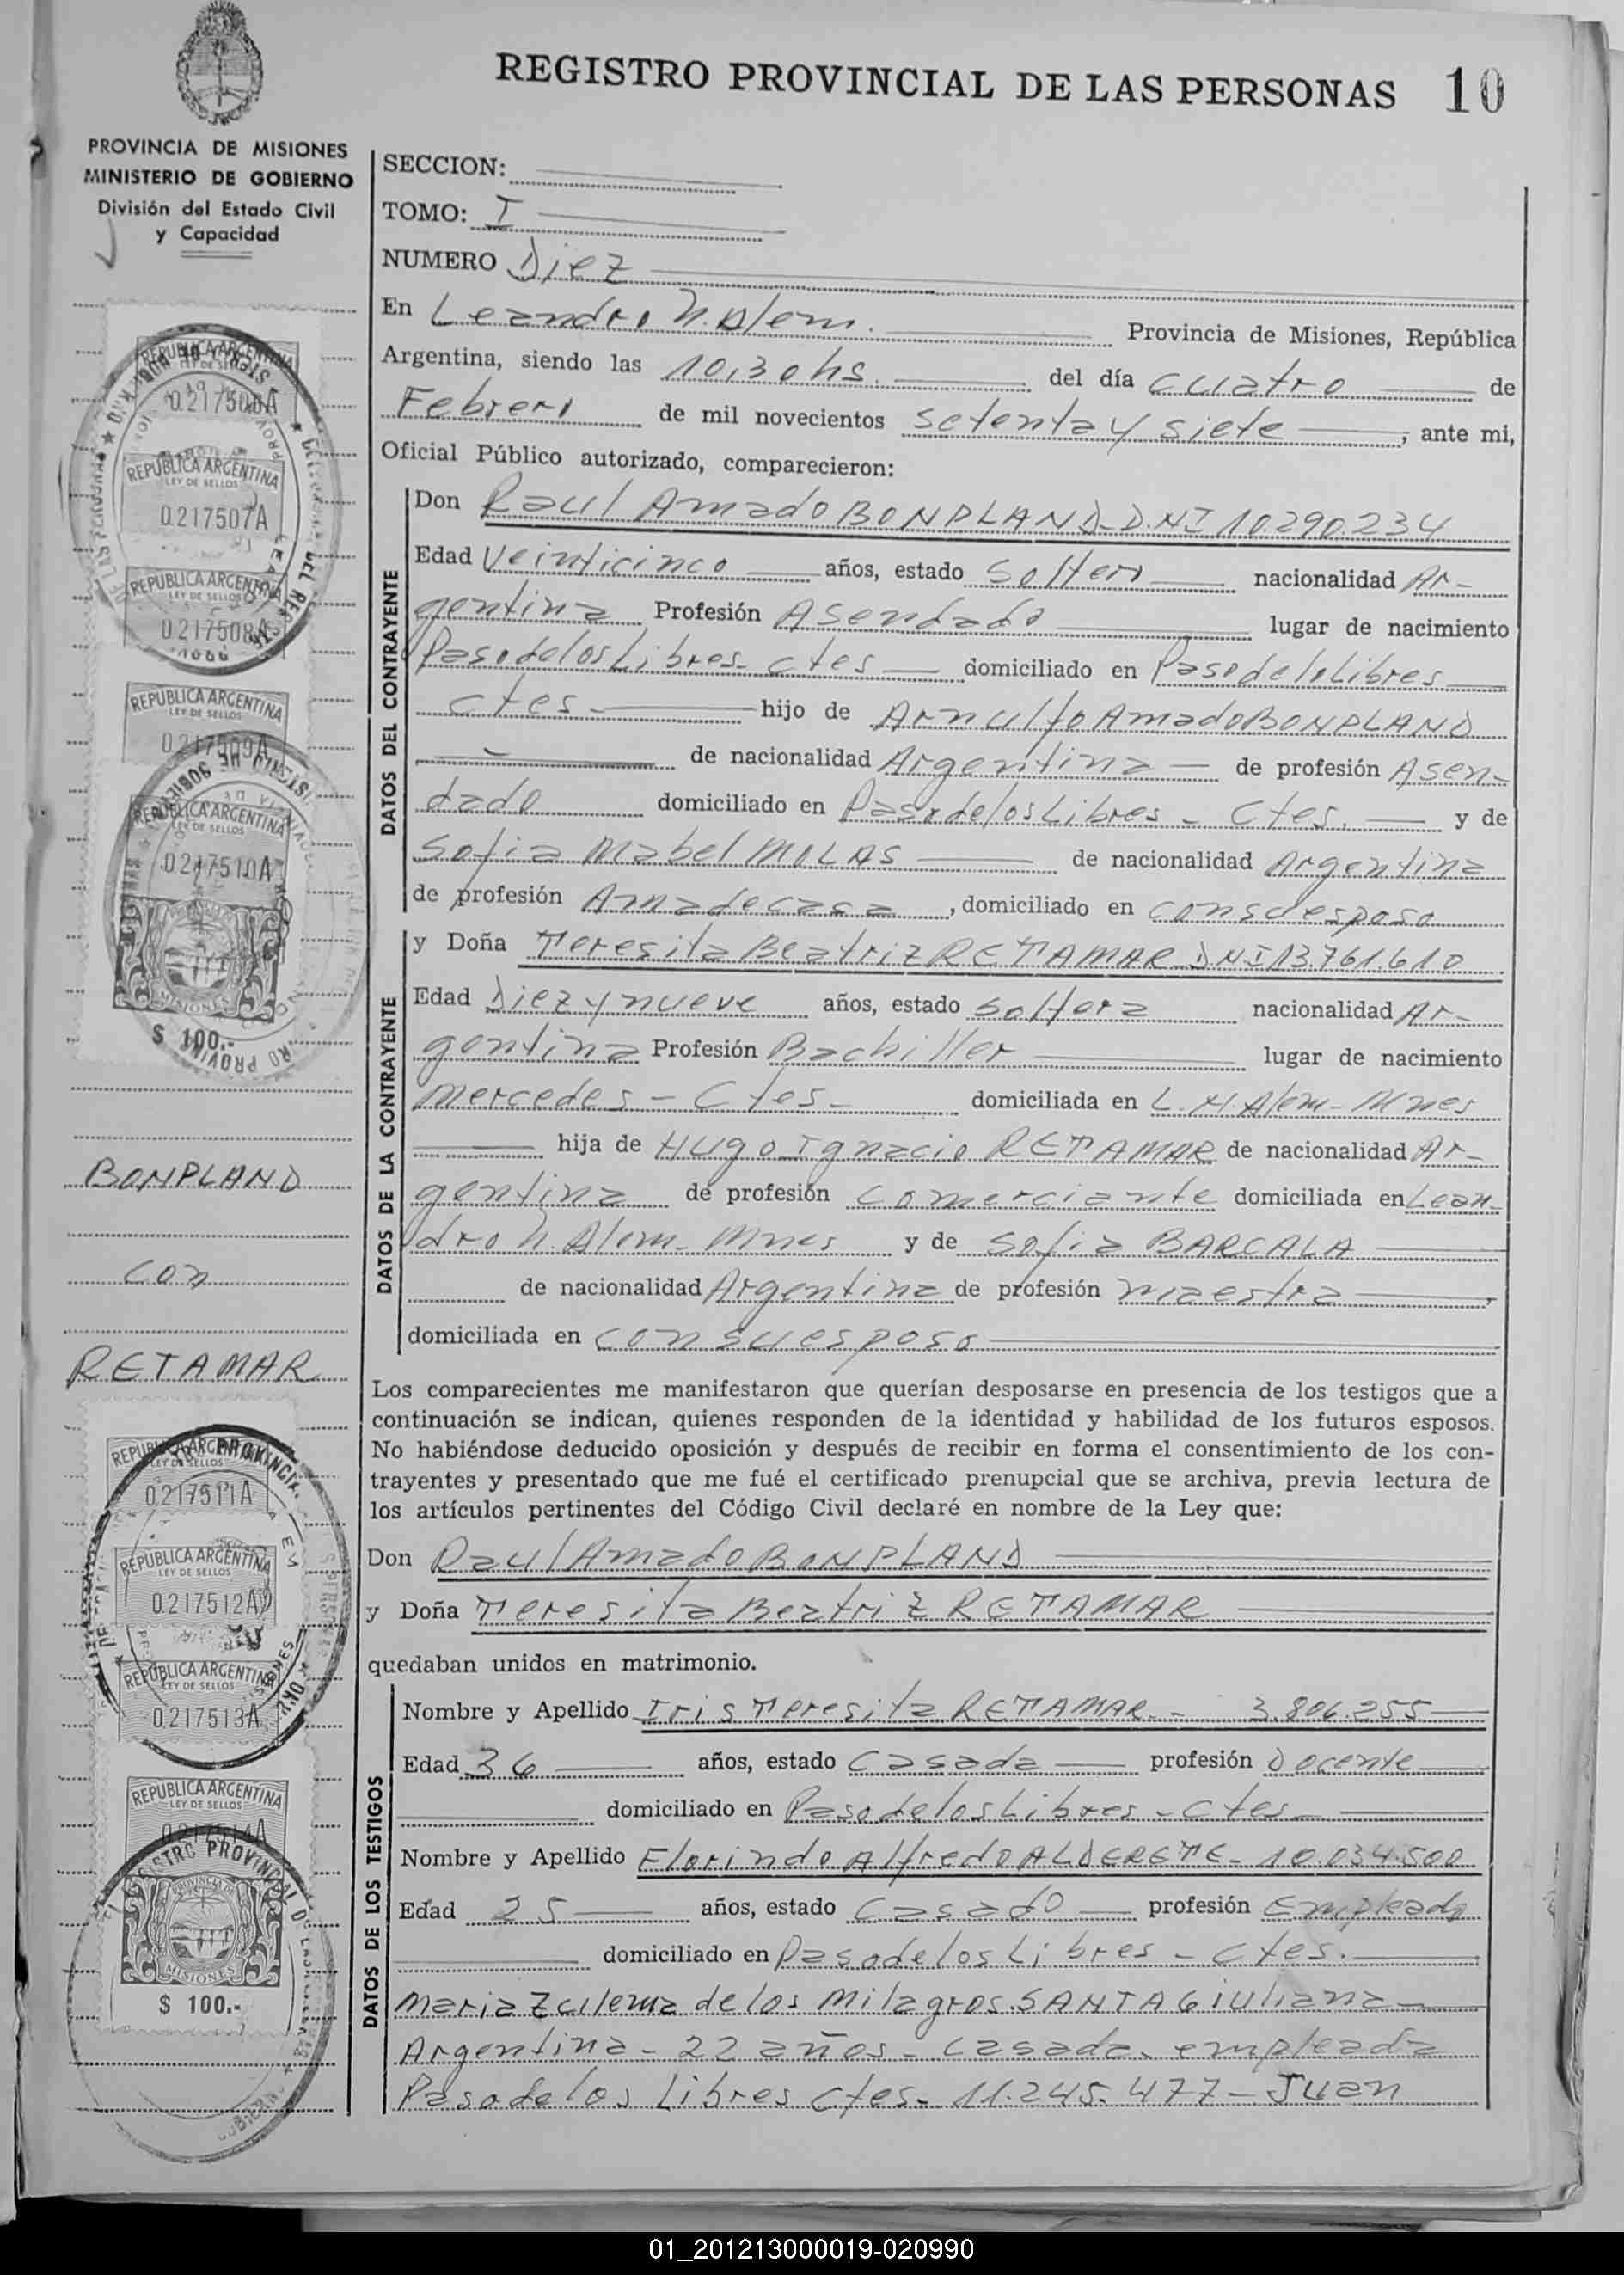 REGISTRO PROVINCIAL DE LAS PERSONAS 10
PROVINCIA DE MISIONES
MINISTERIO DE GOBIERNO
División del Estado Civil
y Capacidad
SECCION:
TOMO: I
NUMERO Diez
En Leandro N. Alem. Provincia de Misiones, República
Argentina, siendo las 10,30 hs. del día cuatro de
Febrero de mil novecientos setenta y siete, ante mi,
Oficial Público autorizado, comparecieron:
DATOS DEL CONTRAYENTE
Don Raul Amado BONPLAND-D.N.I 10.290.234
Edad Veinticinco años, estado soltero nacionalidad Ar-
gentina Profesión Asendado lugar de nacimiento
Paso de los Libres- Ctes domiciliado en Paso de lo Libres
Ctes hijo de Arnulfo Amado BONPLAND
de nacionalidad Argentina de profesión Asen-
dado domiciliado en Paso de los Libres - Ctes. y de
Sofia Mabel MOLAS de nacionalidad Argentina
de profesión Ama de casa, domiciliado en con su esposo
DATOS DE LA CONTRAYENTE
y Doña Teresita Beatriz RETAMAR DNI 13.761.610
Edad Diez y nueve años, estado soltera nacionalidad Ar-
gentina Profesión Bachiller lugar de nacimiento
Mercedes - Ctes- domiciliada en L.N. Alem- Mnes
hija de Hugo Ignacio RETAMAR de nacionalidad Ar-
gentina de profesión comerciante domiciliada en Lean-
dro N. Alem- Mnes y de Sofia BARCALA
de nacionalidad Argentina de profesión maestra,
domiciliada en con su esposo
Los comparecientes me manifestaron que querían desposarse en presencia de los testigos que a
continuación se indican, quienes responden de la identidad y habilidad de los futuros esposos.
No habiéndose deducido oposición y después de recibir en forma el consentimiento de los con-
trayentes y presentado que me fué el certificado prenupcial que se archiva, previa lectura de
los artículos pertinentes del Código Civil declaré en nombre de la Ley que:
Don Raul Amado BONPLAND
y Doña Teresita Beatriz RETAMAR
quedaban unidos en matrimonio.
DATOS DE LOS TESTIGOS
Nombre y Apellido Iris Teresita RETAMAR.- 3.806.255
Edad 36 años, estado Casada profesión Docente
domiciliado en Paso de los Libres - Ctes
Nombre y Apellido Florindo Alfredo ALDERETE- 10.034.500
Edad 25 años, estado Casado profesión Empleado
domiciliado en Paso de los Libres - Ctes.
Maria Zulema de los Milagros SANTAGiuliana-
Argentina - 22 años - casada - empleada
Paso de los Libres Ctes- 11.245.477- Juan
REPUBLICA ARGENTINA
LEY DE SELLOS
0.217506A
REPUBLICA ARGENTINA
LEY DE SELLOS
0.217507A
REPUBLICA ARGENTINA
LEY DE SELLOS
0.217508A
REPUBLICA ARGENTINA
LEY DE SELLOS
0.217509A
REPUBLICA ARGENTINA
LEY DE SELLOS
0.217510A
MISIONES
$ 100.-
BONPLAND
con
RETAMAR
REPUBLICA ARGENTINA
LEY DE SELLOS
0.217511A
REPUBLICA ARGENTINA
LEY DE SELLOS
0.217512A
REPUBLICA ARGENTINA
LEY DE SELLOS
0.217513A
REPUBLICA ARGENTINA
LEY DE SELLOS
0.217514A
MISIONES
$ 100.-
01_201213000019-020990